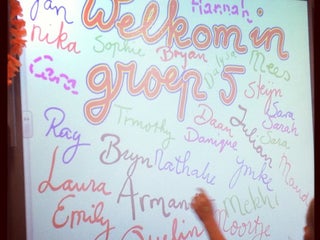 Jan Hannah
Welkom in
Nika Sophie Bryan Dalysa Mees
Cara groep 5 Stijn
Sara
Ray Timothy Daan Julian Sarah
Danique Sara
Bryn Nathalie Ymke Maud
Laura Arman Mekhi
Emily Quelin Noortje